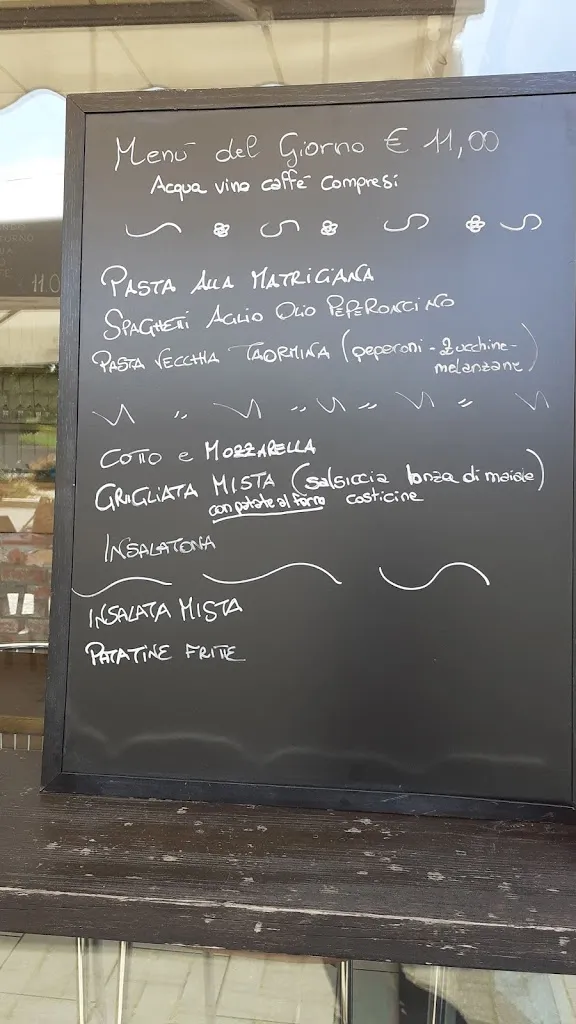 Menù del Giorno € 11,00
Acqua vino caffè compresi
PASTA ALLA MATRICIANA
SPAGHETTI AGLIO OLIO PEPERONCINO
PASTA VECCHIA TAORMINA (peperoni - Zucchine -
melanzane)
COTTO e MOZZARELLA
GRIGLIATA MISTA (salsiccia lonza di maiale)
con patate al forno costicine
INSALATONA
INSALATA MISTA
PATATINE FRITTE
11.0